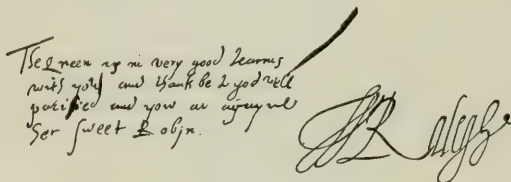 The Queen ys in very good tearms
with yow and thank be to god well
pacified and yow ar agayne
her sweet Robyn.
W Ralegh